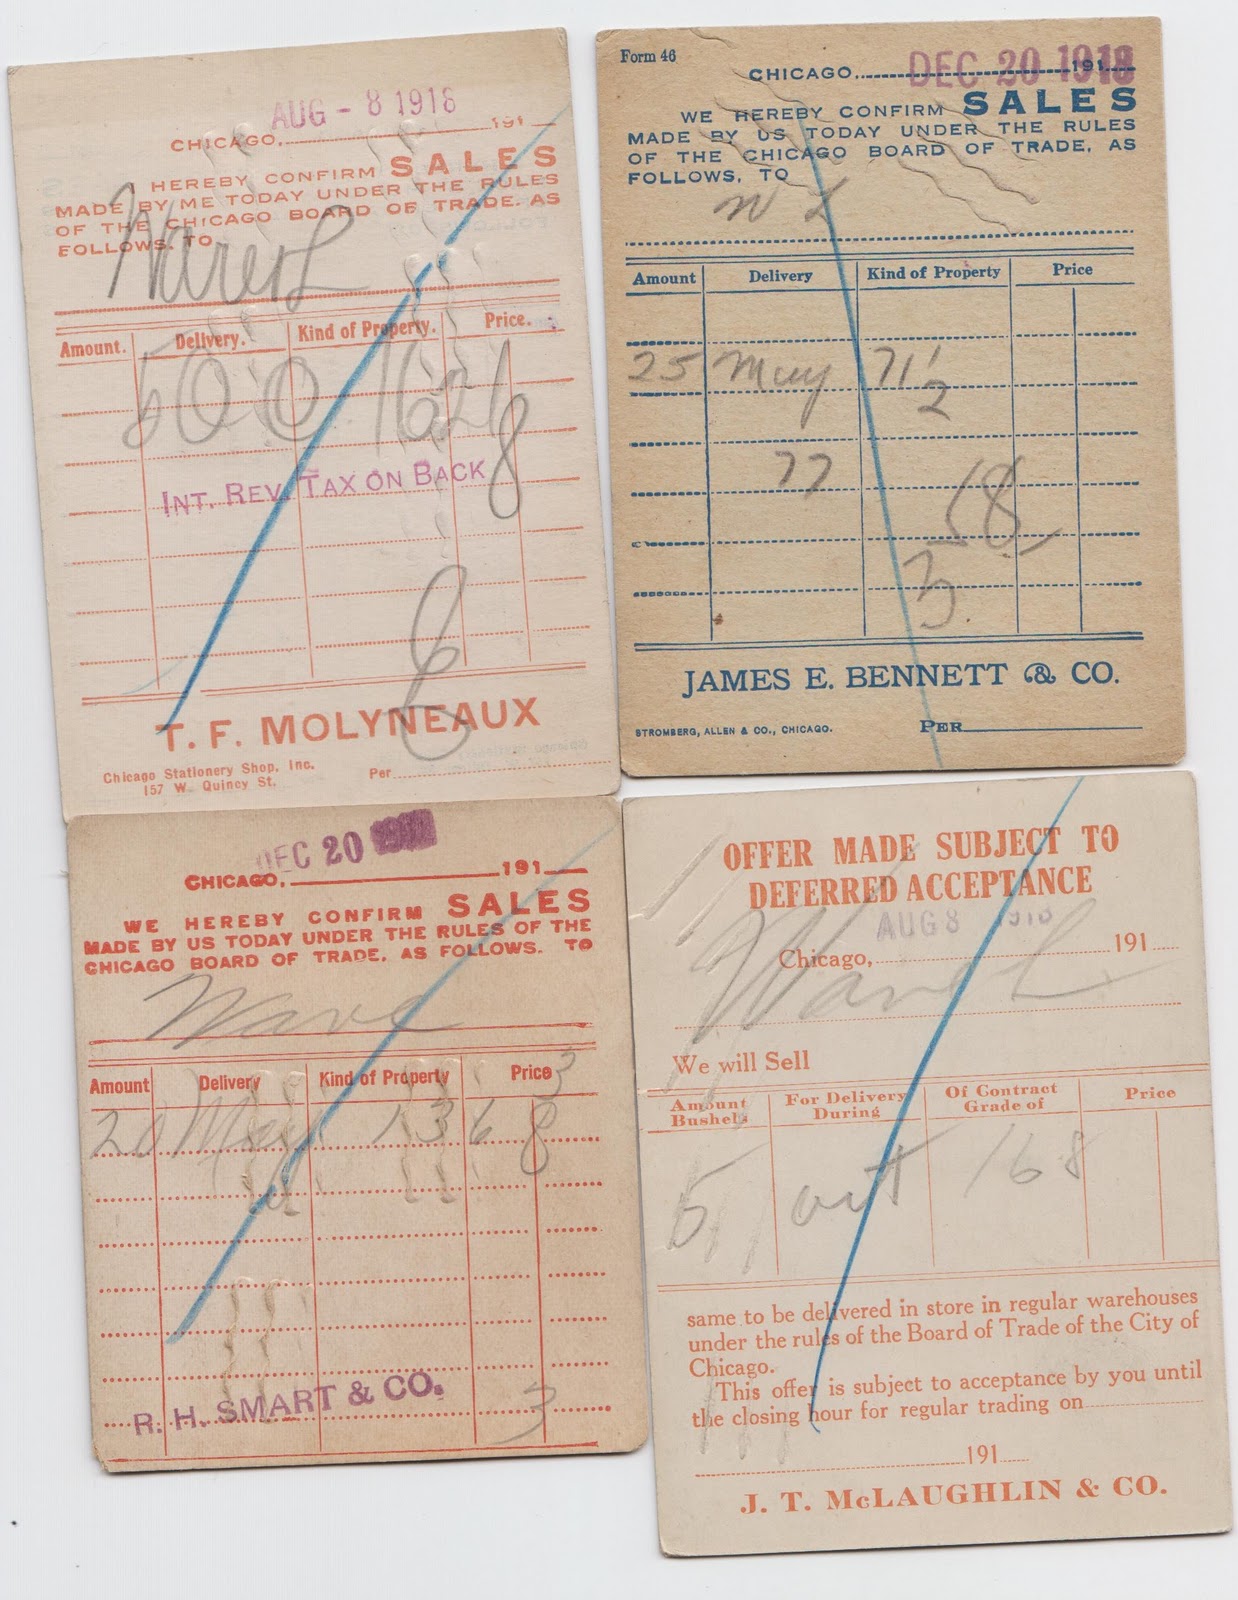 AUG - 8 1918
CHICAGO, 191
HEREBY CONFIRM SALES
MADE BY ME TODAY UNDER THE RULES
OF THE CHICAGO BOARD OF TRADE, AS
FOLLOWS, TO
Amount. Delivery. Kind of Property. Price.
INT. REV. TAX ON BACK
T. F. MOLYNEAUX
Chicago Stationery Shop, Inc.
157 W. Quincy St.
Per
Form 46
DEC 20 1918
CHICAGO, 191
WE HEREBY CONFIRM SALES
MADE BY US TODAY UNDER THE RULES
OF THE CHICAGO BOARD OF TRADE, AS
FOLLOWS, TO
W L
Amount Delivery Kind of Property Price
25 May 71 1/2
77
68
3
JAMES E. BENNETT & CO.
STROMBERG, ALLEN & CO., CHICAGO. PER
DEC 20
CHICAGO, 191
WE HEREBY CONFIRM SALES
MADE BY US TODAY UNDER THE RULES OF THE
CHICAGO BOARD OF TRADE, AS FOLLOWS, TO
Ware
Amount Delivery Kind of Property Price
3
20 May 136 8
R. H. SMART & CO.
3
OFFER MADE SUBJECT TO
DEFERRED ACCEPTANCE
AUG 8 1918
Chicago, 191
We will Sell
Amount Bushels For Delivery During Of Contract Grade of Price
5 out 168
same to be delivered in store in regular warehouses
under the rules of the Board of Trade of the City of
Chicago.
This offer is subject to acceptance by you until
the closing hour for regular trading on
191
J. T. McLAUGHLIN & CO.